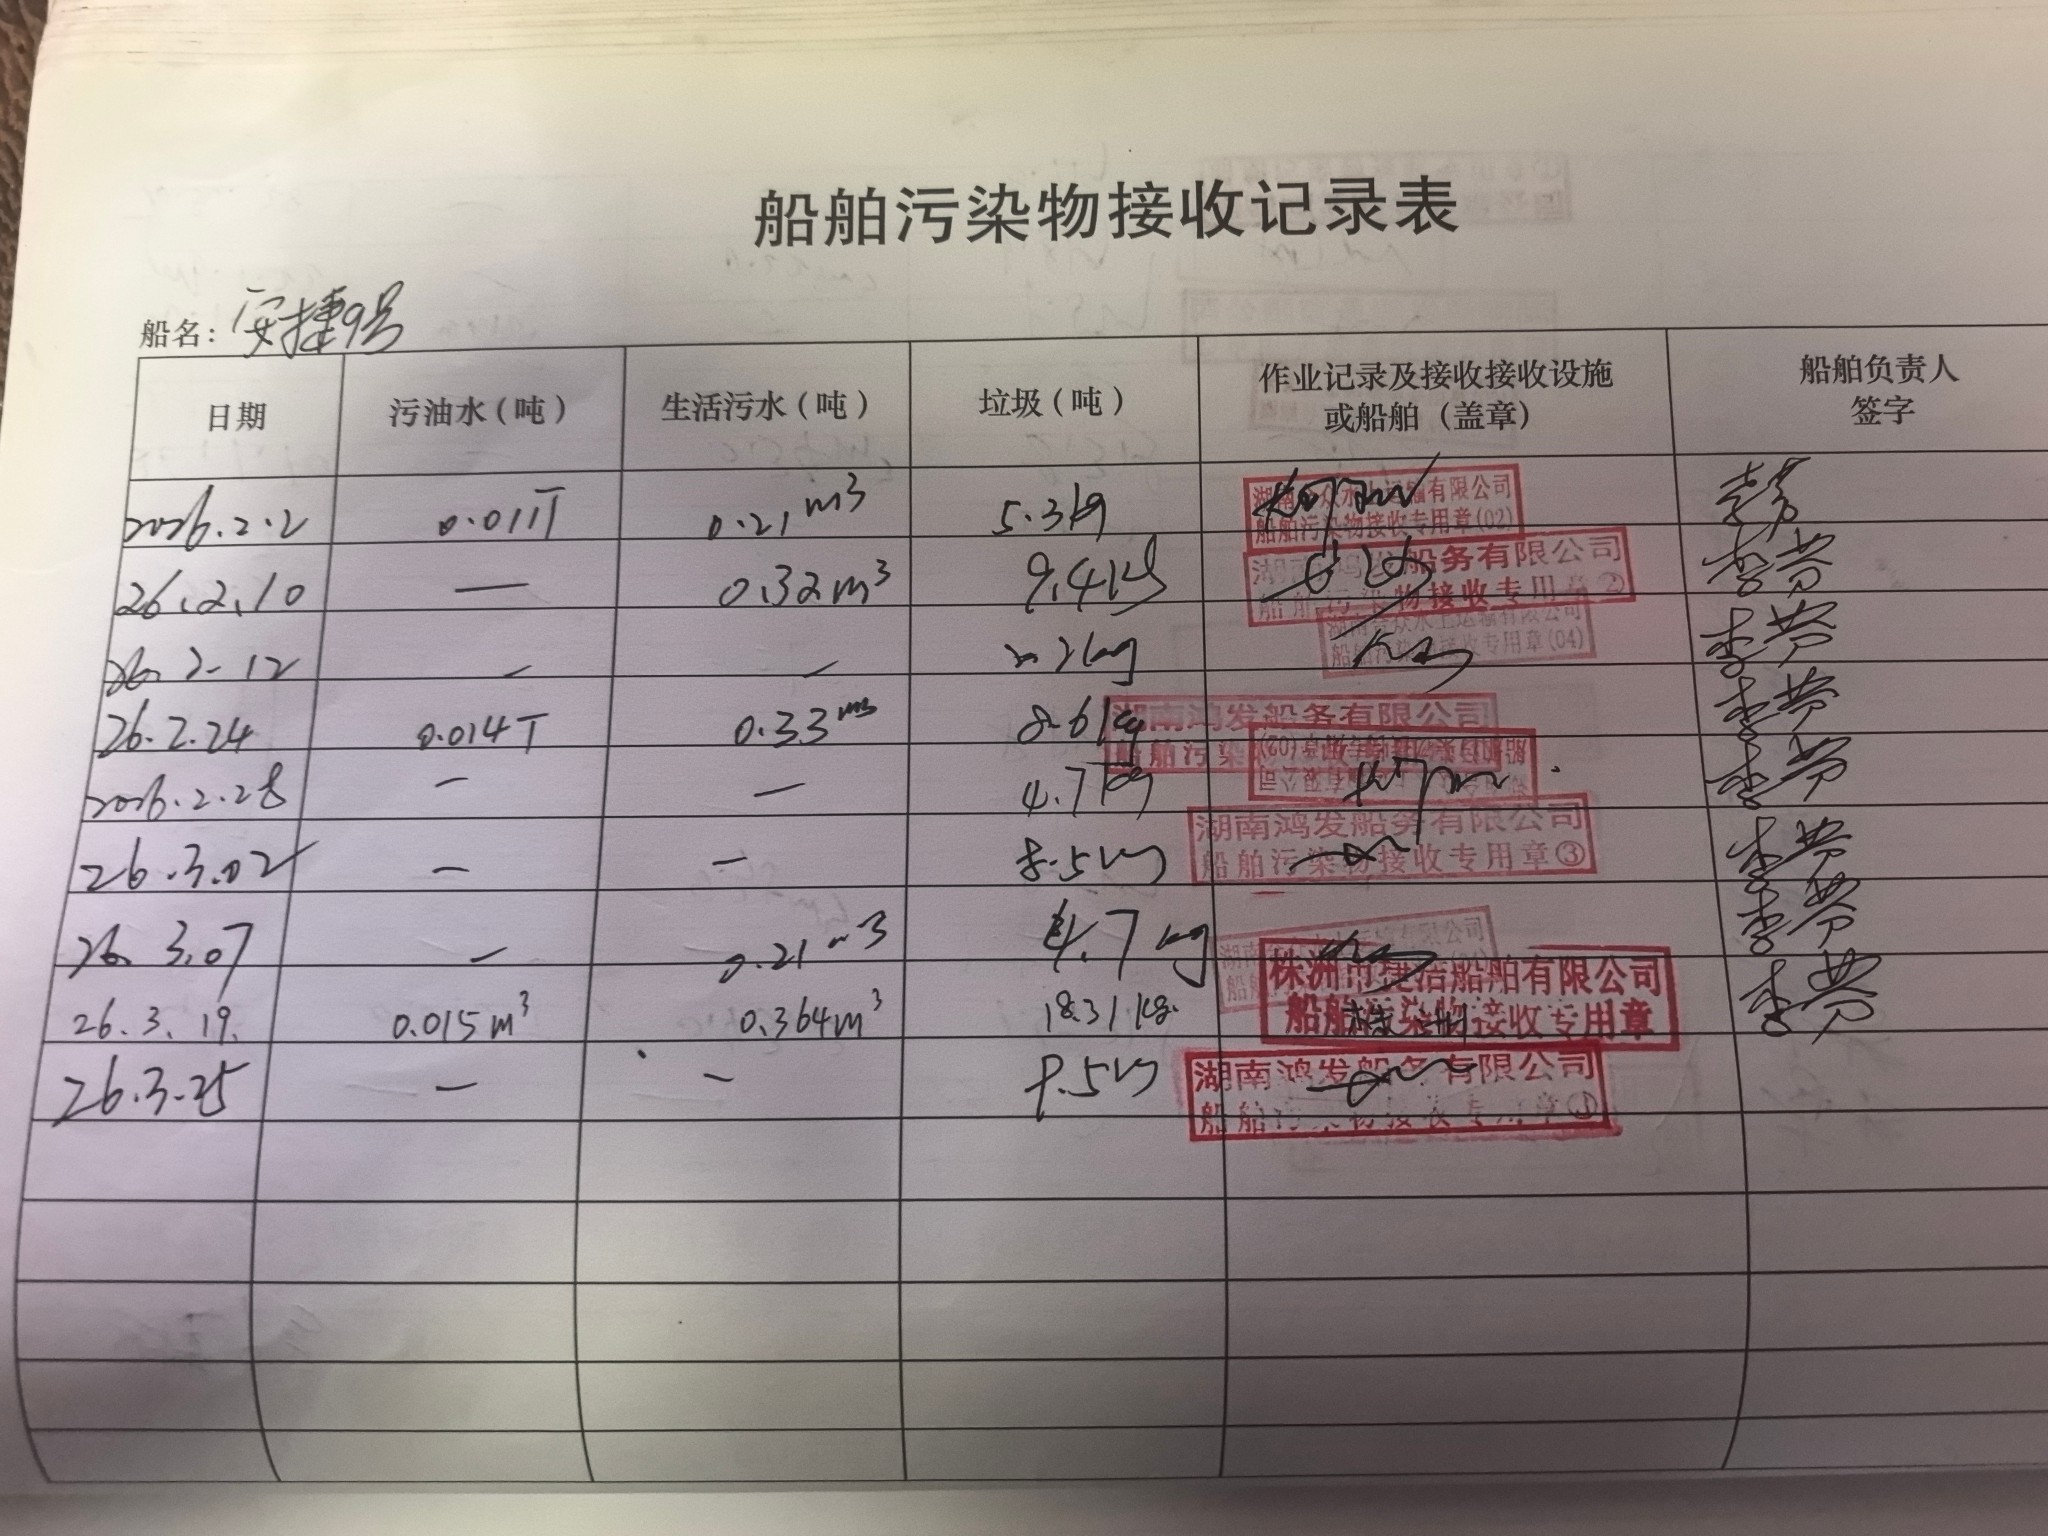 船舶污染物接收记录表
船名：安捷9号
日期 污油水（吨） 生活污水（吨） 垃圾（吨） 作业记录及接收接收设施或船舶（盖章） 船舶负责人签字
2026.2.2 0.011T 0.21m³ 5.3kg 湖南合众水上运输有限公司 船舶污染物接收专用章(02)
26.2.10 — 0.32m³ 9.4kg 船务有限公司 船舶污染物接收专用章②
26.2.12 — — 2.2kg 湖南合众水上运输有限公司 船舶污染物接收专用章(04)
26.2.24 0.014T 0.33m3 8.6kg 湖南鸿发船务有限公司 船舶污染
2026.2.28 — — 4.7kg
26.3.02 — — 8.5kg 湖南鸿发船务有限公司 船舶污染物接收专用章③
26.3.07 — 0.21m3 4.7kg
26.3.19. 0.015m³ 0.364m³ 18.31kg. 株洲市捷洁船舶有限公司 船舶污染物接收专用章
26.3.25 — — 9.5kg 湖南鸿发船务有限公司 船舶污染物接收专用章①